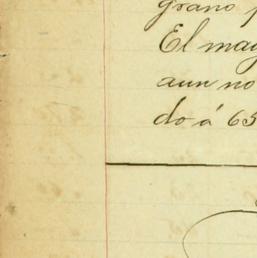 grano p
El may
aun no
do á 65